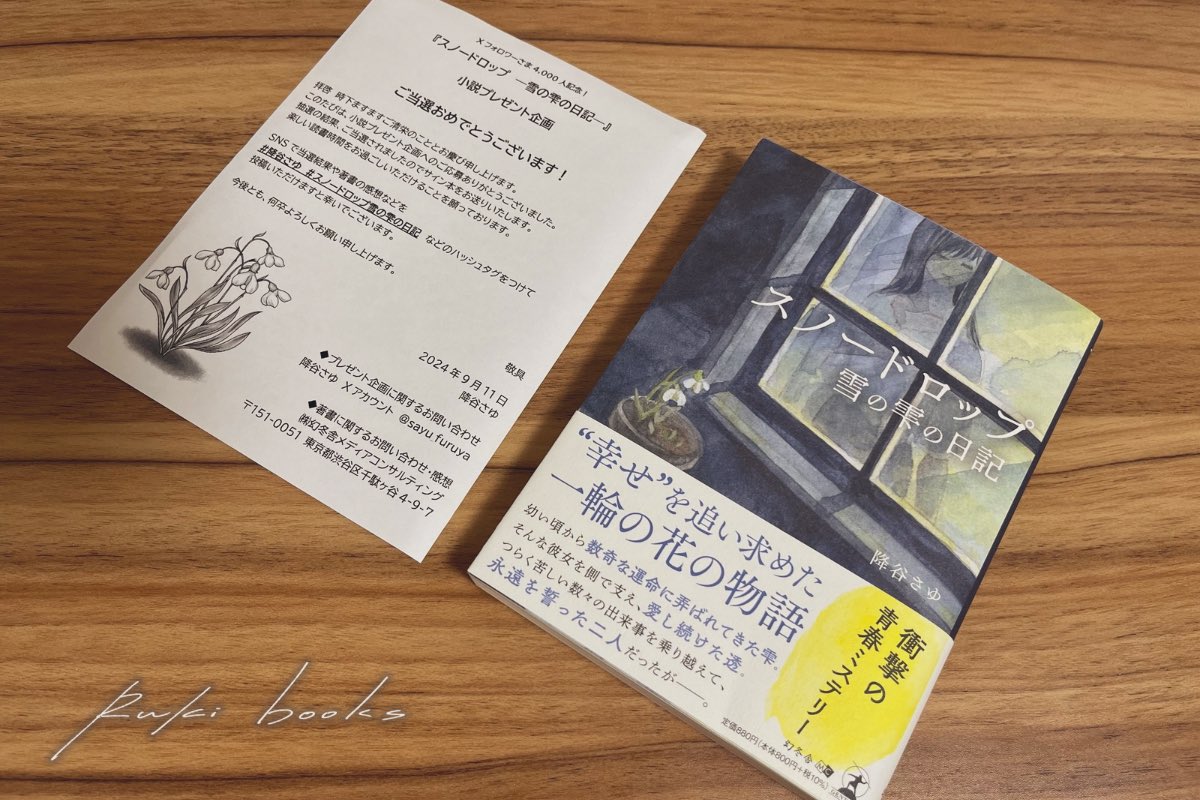 Xフォロワーさま4,000人記念！
『スノードロップ ―雪の雫の日記―』
小説プレゼント企画
ご当選おめでとうございます！
拝啓 時下ますますご清栄のこととお慶び申し上げます。
このたびは、小説プレゼント企画へのご応募ありがとうございました。
抽選の結果、ご当選されましたのでサイン本をお送りいたします。
楽しい読書時間をお過ごしいただけることを願っております。
SNSで当選結果や著書の感想などを
#降谷さゆ #スノードロップ雪の雫の日記 などのハッシュタグをつけて
投稿いただけますと幸いでございます。
今後とも、何卒よろしくお願い申し上げます。
敬具
2024年9月11日
降谷さゆ
◆プレゼント企画に関するお問い合わせ
降谷さゆ Xアカウント @sayu_furuya
◆著書に関するお問い合わせ・感想
㈱幻冬舎メディアコンサルティング
〒151-0051 東京都渋谷区千駄ヶ谷4-9-7
スノードロップ
雪の雫の日記
降谷さゆ
“幸せ”を追い求めた
一輪の花の物語
幼い頃から数奇な運命に弄ばれてきた雫。
そんな彼女を側で支え、愛し続けた透。
つらく苦しい数々の出来事を乗り越えて、
永遠を誓った二人だったが――。
衝撃の
青春ミステリー
定価880円(本体800円+税10%)
幻冬舎 MC
Ruki books